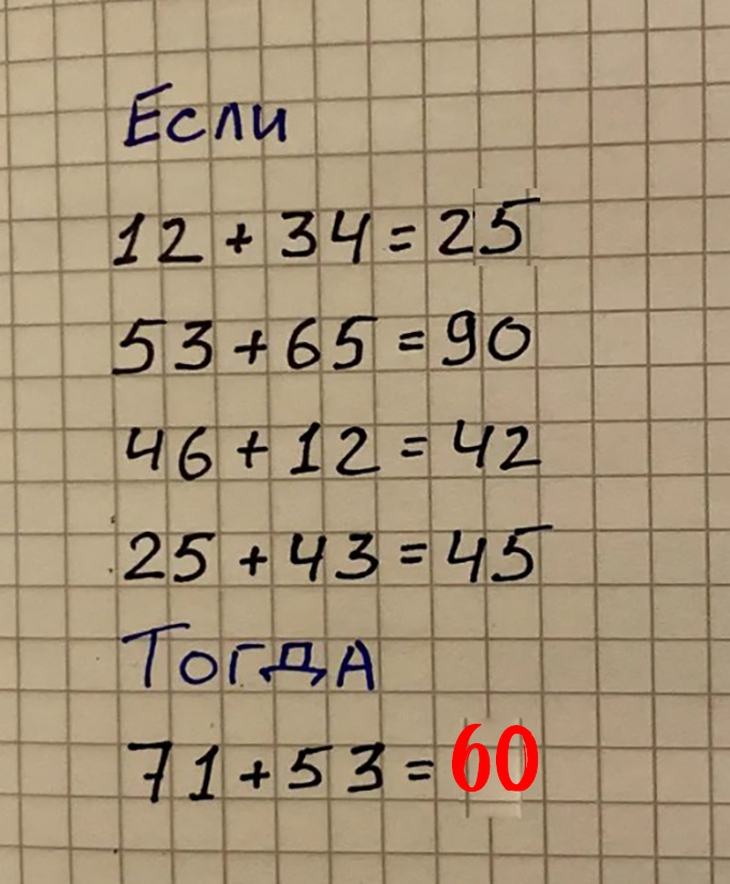 Если
12 + 34 = 25
53 + 65 = 90
46 + 12 = 42
25 + 43 = 45
Тогда
71 + 53 = 60